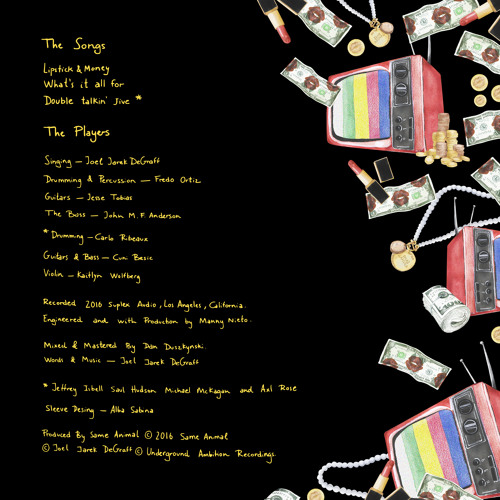 The Songs
Lipstick & Money
What's it all for
Double talkin' jive *
The Players
Singing – Joel Jarek DeGraff
Drumming & Percussion — Fredo Ortiz
Guitars – Jesse Tobias
The Bass – John M.F. Anderson
* Drumming – Carla Ribeaux
Guitars & Bass – Cuni Besic
Violin – Kaitlyn Wolfberg
Recorded 2016 Suplex Audio, Los Angeles, California.
Engineered and with Production by Manny Nieto.
Mixed & Mastered By Dan Duszkynski.
Words & Music – Joel Jarek DeGraff
* Jeffrey Isbell Saul Hudson Michael McKagan and Axl Rose
Sleeve Desing – Alba Sabina
Produced By Same Animal © 2016 Same Animal
© Joel Jarek DeGraff © Underground Ambition Recordings.